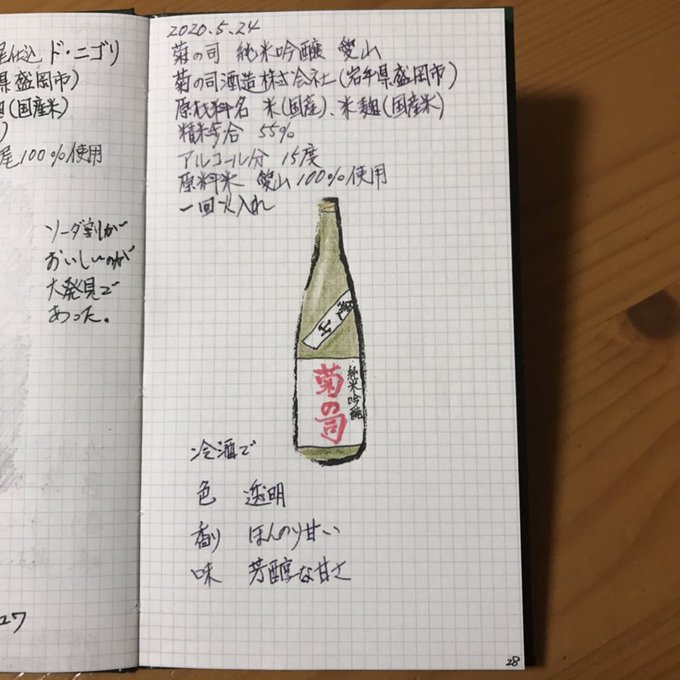 尾仕込 ド・ニゴリ
県盛岡市)
麹(国産米)
)
尾100%使用
ソーダ割が
おいしいのが
大発見で
あった。
27
2020.5.24
菊の司 純米吟醸 愛山
菊の司酒造株式会社(岩手県盛岡市)
原材料名 米(国産)、米麹(国産米)
精米歩合 55%
アルコール分 15度
原料米 愛山100%使用
一回火入れ
愛山
純米吟醸
菊の司
冷酒で
色 透明
香り ほんのり甘い
味 芳醇な甘さ
28